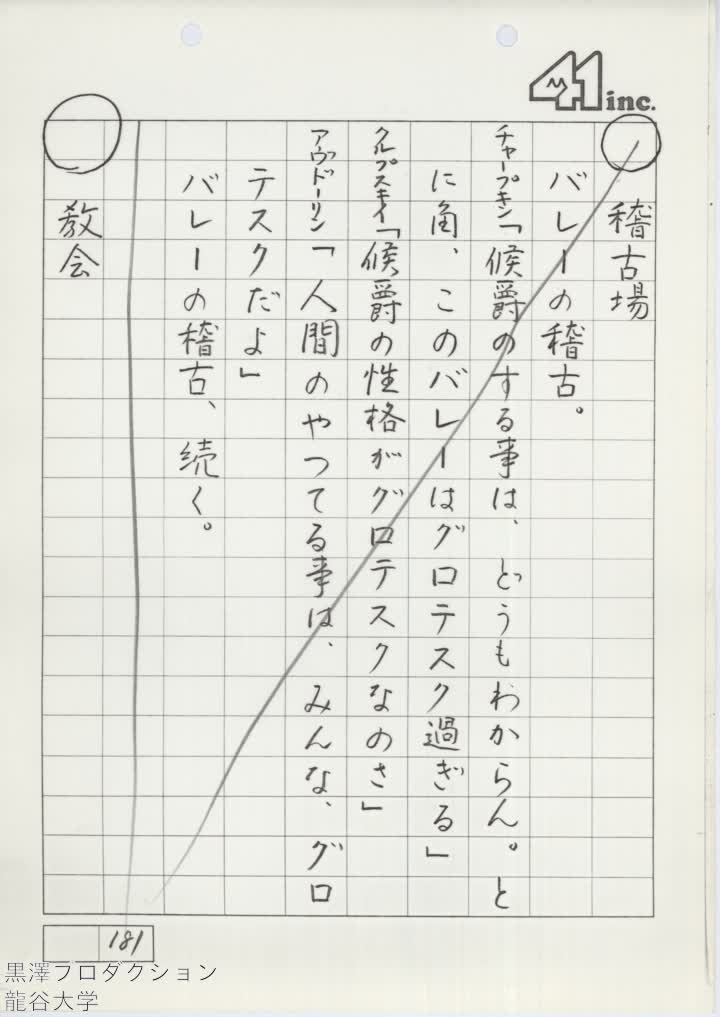 41 inc.
稽古場
バレーの稽古。
チャープキン「候爵のする事は、どうもわからん。と
に角、このバレーはグロテスク過ぎる」
クルプスキイ「候爵の性格がグロテスクなのさ」
アヴドーリン「人間のやつてる事は、みんな、グロ
テスクだよ」
バレーの稽古、続く。
教会
181
黒澤プロダクション
龍谷大学